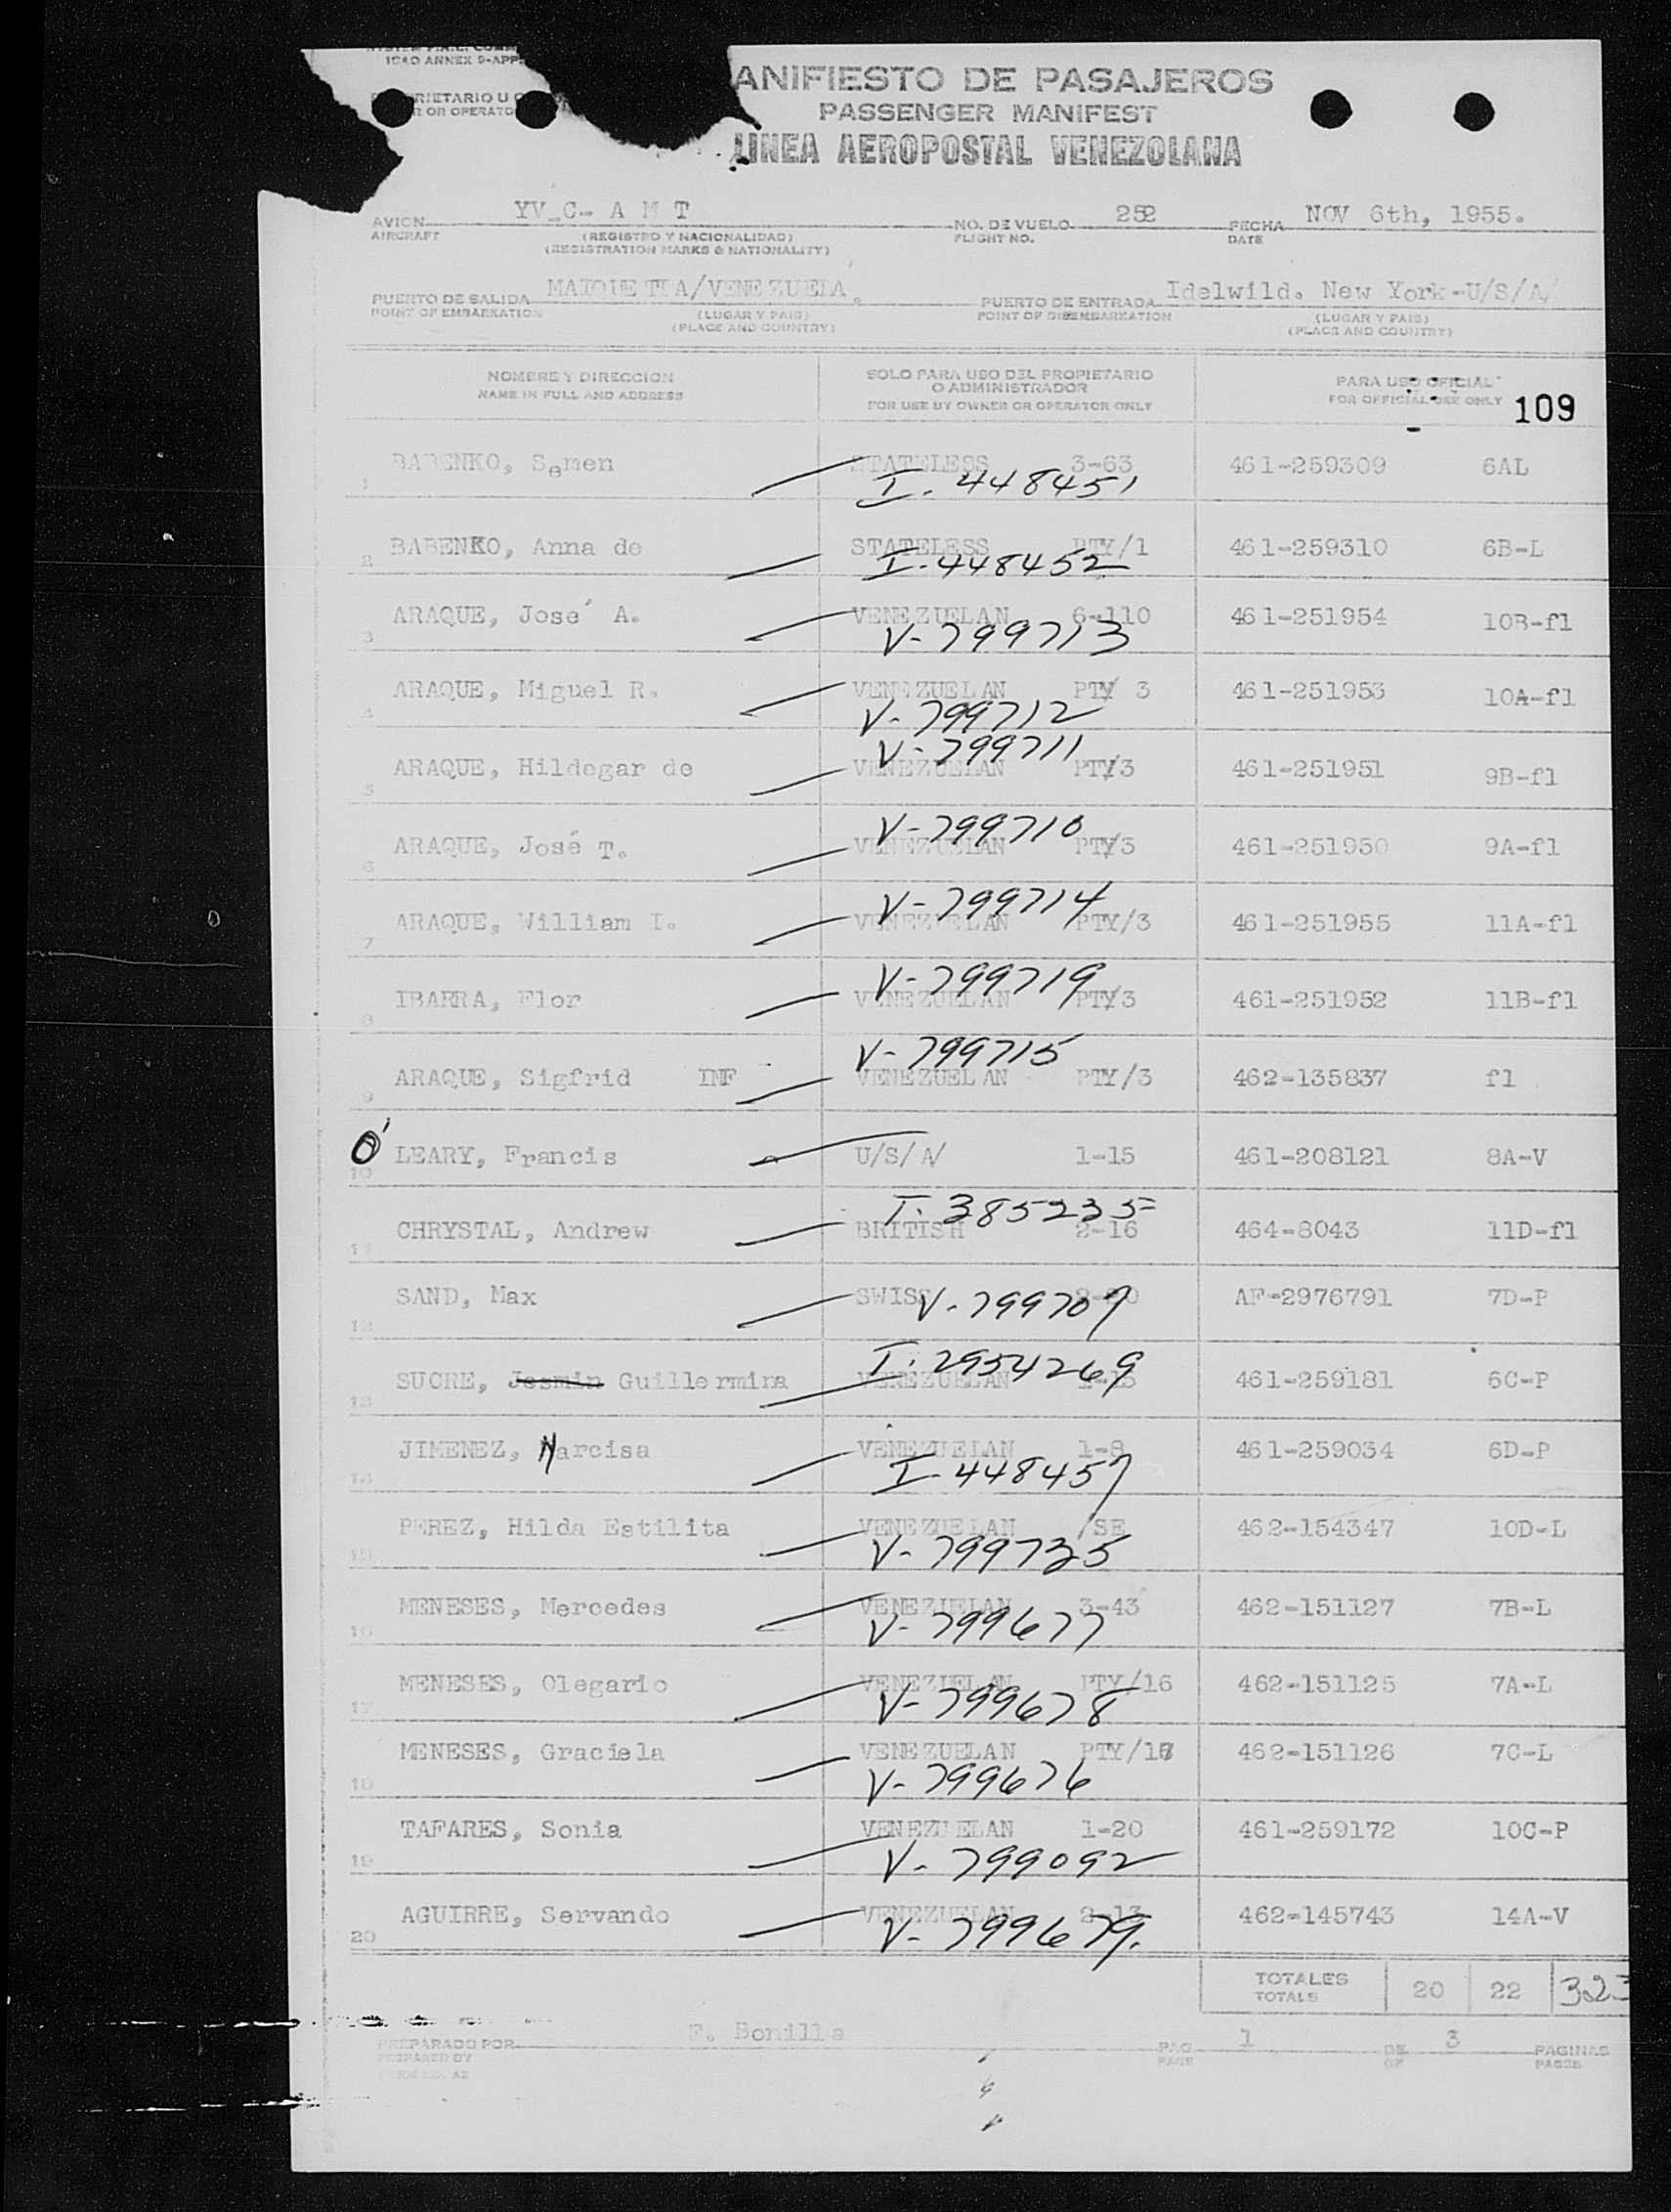 ICAO ANNEX 9-APP
RIETARIO U O
R OR OPERATO
ANIFIESTO DE PASAJEROS
PASSENGER MANIFEST
LINEA AEROPOSTAL VENEZOLANA
AVION YV-C- A M T NO. DE VUELO 252 FECHA NOV 6th, 1955.
AIRCRAFT (REGISTRO Y NACIONALIDAD) FLIGHT NO. DATE
(REGISTRATION MARKS & NATIONALITY)
PUERTO DE SALIDA MAIQUETIA/VENEZUELA. PUERTO DE ENTRADA Idelwild. New York-U/S/A/
POINT OF EMBARKATION (LUGAR Y PAIS) POINT OF DISEMBARKATION (LUGAR Y PAIS)
(PLACE AND COUNTRY) (PLACE AND COUNTRY)
NOMBRE Y DIRECCION SOLO PARA USO DEL PROPIETARIO PARA USO OFICIAL
NAME IN FULL AND ADDRESS O ADMINISTRADOR FOR OFFICIAL USE ONLY 109
FOR USE BY OWNER OR OPERATOR ONLY
1 BABENKO, Semen STATELESS 3-63 461-259309 6AL
I. 448451
2 BABENKO, Anna de STATELESS PTY/1 461-259310 6B-L
I-448452
3 ARAQUE, José A. VENEZUELAN 6-110 461-251954 10B-fl
V-799713
4 ARAQUE, Miguel R. VENEZUELAN PTY 3 461-251953 10A-fl
V-799712
V-799711
5 ARAQUE, Hildegar de VENEZUELAN PTY/3 461-251951 9B-fl
V-799710
6 ARAQUE, José T. VENEZUELAN PTY/3 461-251950 9A-fl
V-799714
7 ARAQUE, William I. VENEZUELAN PTY/3 461-251955 11A-fl
V-799719
8 IBARRA, Flor VENEZUELAN PTY/3 461-251952 11B-fl
V-799715
9 ARAQUE, Sigfrid INF VENEZUELAN PTY/3 462-135837 fl
10 O' LEARY, Francis U/S/A/ 1-15 461-208121 8A-V
I. 385235
11 CHRYSTAL, Andrew BRITISH 2-16 464-8043 11D-fl
12 SAND, Max SWISS V-799707 AF-2976791 7D-P
I. 2954269
13 SUCRE, Jesmin Guillermina VENEZUELAN 461-259181 6C-P
14 JIMENEZ, Narcisa VENEZUELAN 1-8 461-259034 6D-P
I-448457
15 PEREZ, Hilda Estilita VENEZUELAN /SE 462-154347 10D-L
V-799735
16 MENESES, Mercedes VENEZUELAN 3-43 462-151127 7B-L
V-799677
17 MENESES, Olegario VENEZUELAN PTY/16 462-151125 7A-L
V-799678
18 MENESES, Graciela VENEZUELAN PTY/16 462-151126 7C-L
V-799676
19 TAFARES, Sonia VENEZUELAN 1-20 461-259172 10C-P
V-799092
20 AGUIRRE, Servando VENEZUELAN 2-13 462-145743 14A-V
V-799679.
TOTALES 20 22 323
TOTALS
PREPARADO POR F. Bonilla PAG 1 DE 3 PAGINAS
PREPARED BY PAGE OF PAGES